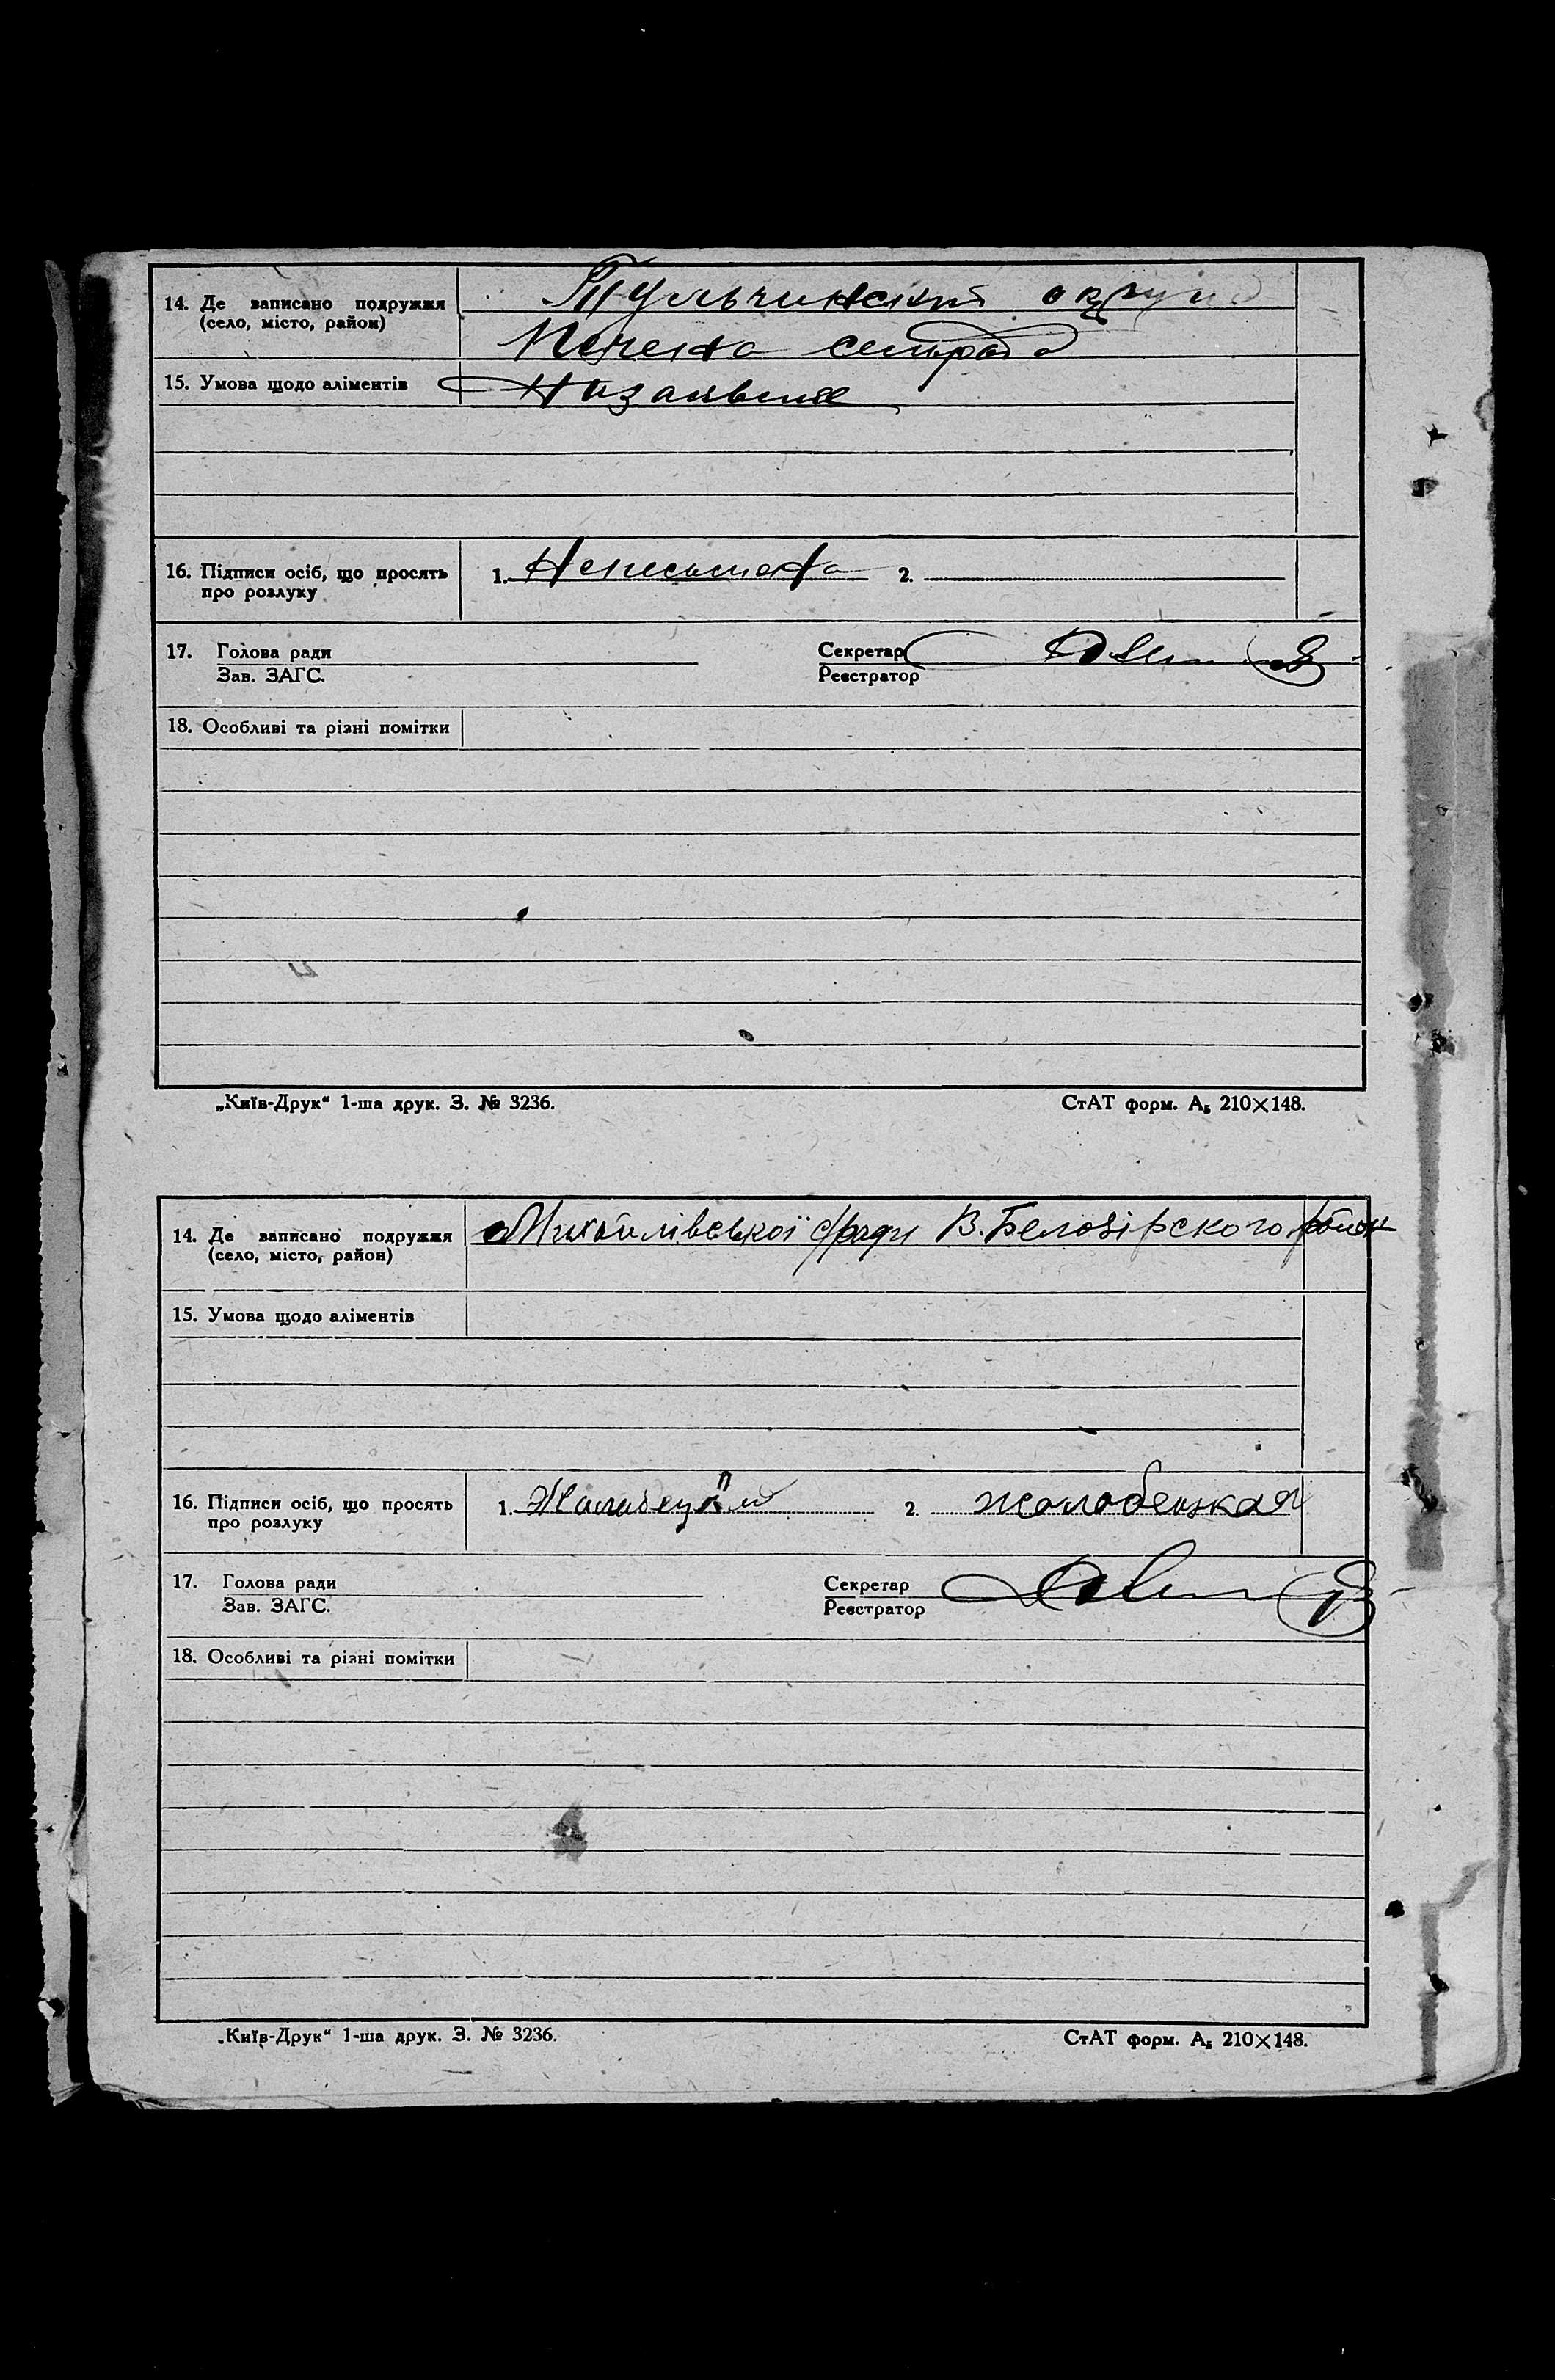 14. Де записано подружжя
(село, місто, район)
Тульчинский округ
Печена сельрада
15. Умова щодо аліментів
16. Підписи осіб, що просять
про розлуку
1. Неписьмена 2.
17. Голова ради
Зав. ЗАГС.
Секретар
Реєстратор
18. Особливі та різні помітки
„Київ-Друк“ 1-ша друк. З. № 3236. СтАТ форм. А₅ 210×148.
14. Де записано подружжя
(село, місто, район)
Михайлівської с/ради В.Белозірского район
15. Умова щодо аліментів
16. Підписи осіб, що просять
про розлуку
1. 2. жолобецкая
17. Голова ради
Зав. ЗАГС.
Секретар
Реєстратор
18. Особливі та різні помітки
„Київ-Друк“ 1-ша друк. З. № 3236. СтАТ форм. А₅ 210×148.